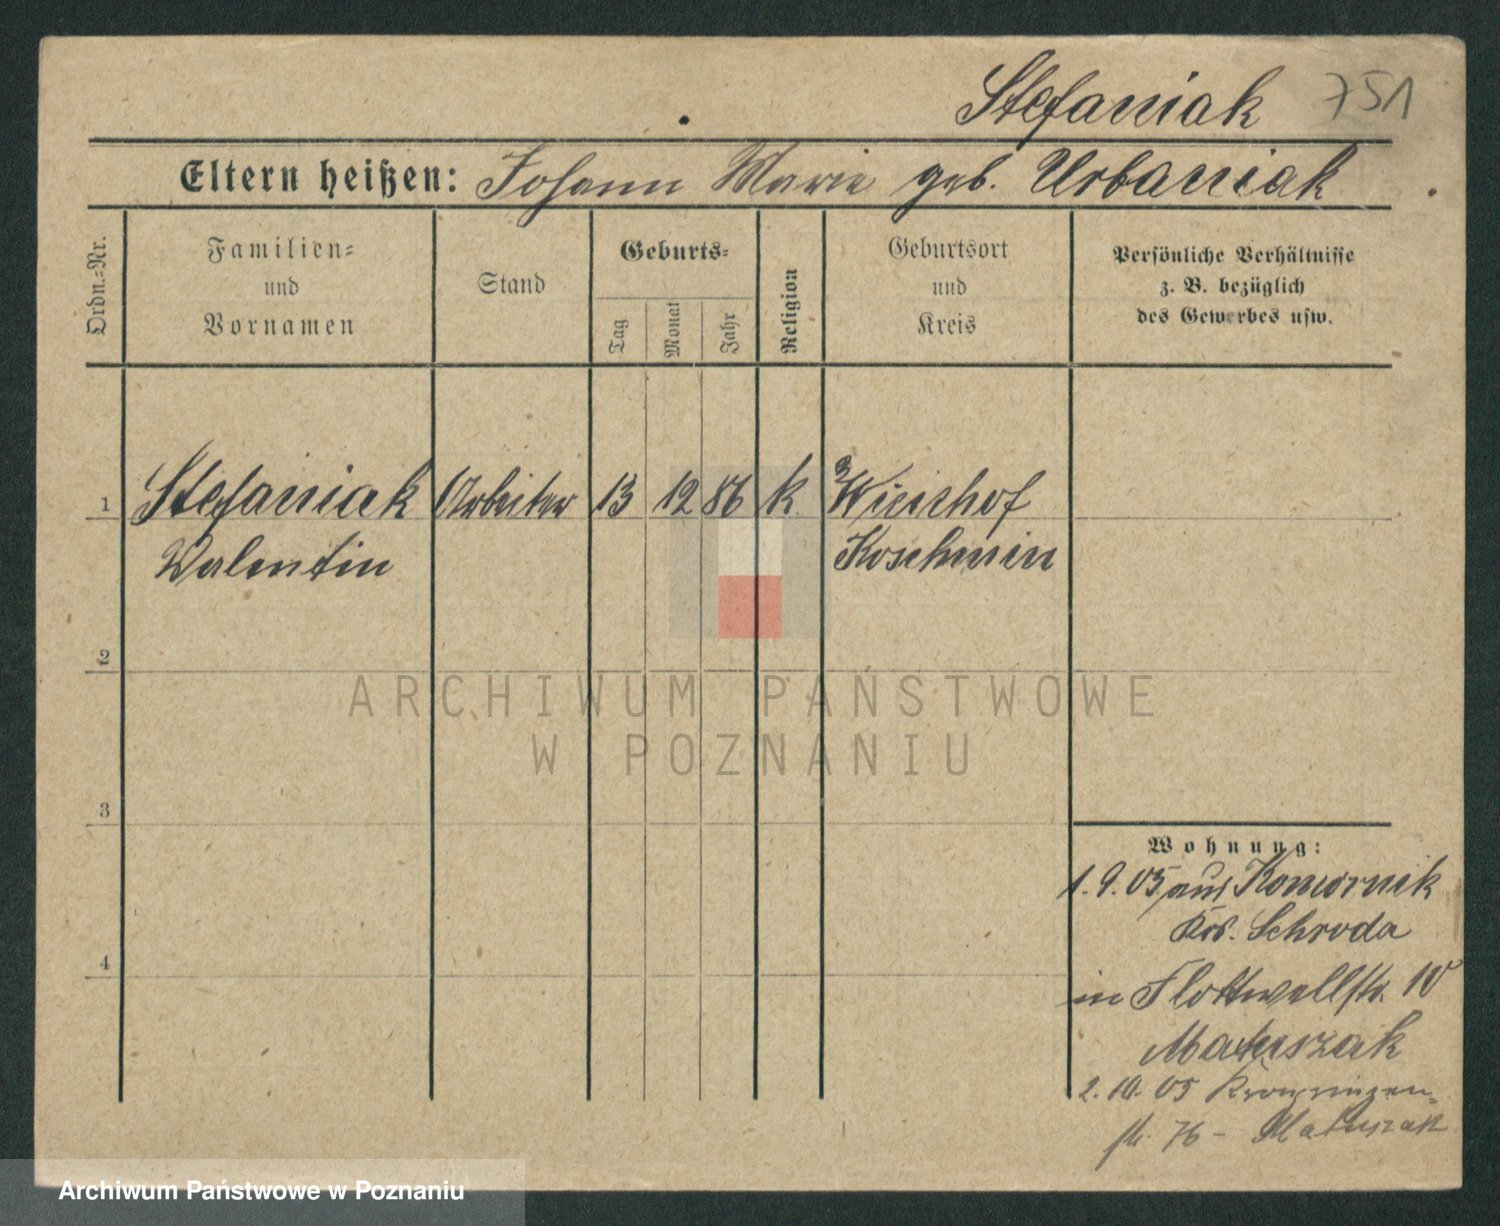 Stefaniak 751
Eltern heißen: Johann Marie geb. Urbaniak
Ordn.=Nr.
Familien=
und
Vornamen
Stand
Geburts=
Tag
Monat
Jahr
Religion
Geburtsort
und
Kreis
Persönliche Verhältnisse
z. B. bezüglich
des Gewerbes usw.
1 Stefaniak Arbeiter 13 12 86 k
Walentin Koschmin
2
3
4
ARCHIWUM PAŃSTWOWE
W POZNANIU
Wohnung:
1.9.05 aus Komornik
Krs. Schroda
in Flottwellstr. 10
Matuszak
2.10.05 Kronprinzen=
str. 76 - Matuszak
Archiwum Państwowe w Poznaniu